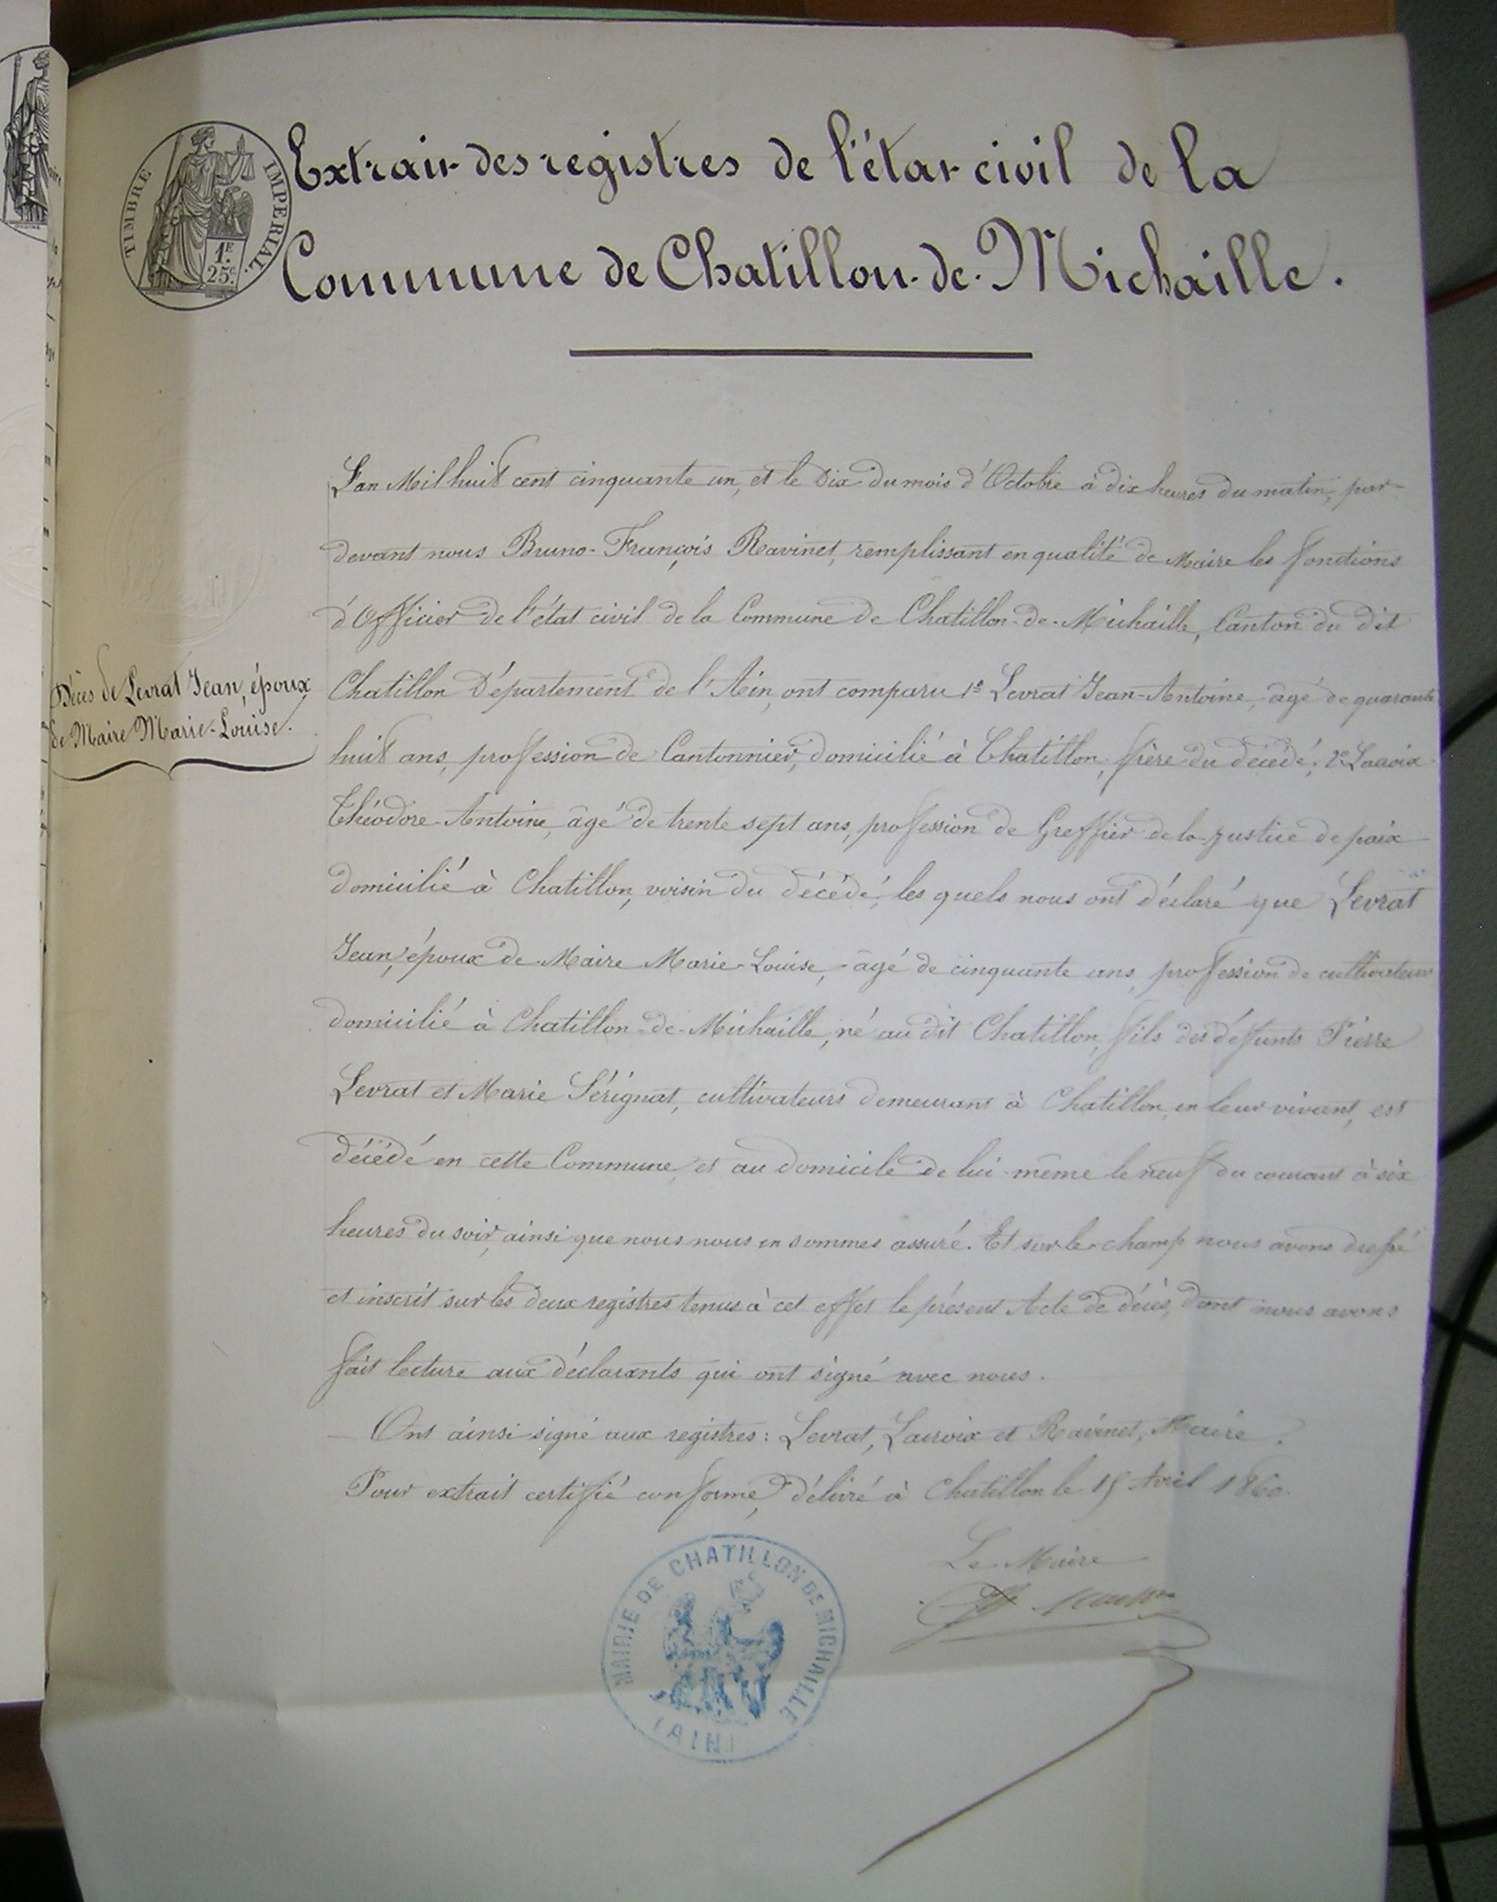 TIMBRE IMPERIAL.
1F
25c
Extrait des registres de l'état civil de la
Commune de Chatillon-de-Michaille.
Décès de Levrat Jean, époux
de Maire Marie-Louise.
L'an Mil huit cent cinquante un, et le Dix du mois d'Octobre à dix heures du matin, par-
devant nous Bruno-François Ravinet, remplissant en qualité de Maire les fonctions
d'Officier de l'état civil de la Commune de Chatillon-de-Michaille, Canton du dit
Chatillon Département de l'Ain, ont comparu 1o Levrat Jean-Antoine, âgé de quarante
huit ans, profession de Cantonnier, domicilié à Chatillon, frère du décédé; 2o Lacroix
Théodore-Antoine, âgé de trente sept ans, profession de Greffier de la justice de paix
domicilié à Chatillon, voisin du décédé, les quels nous ont déclaré que Levrat
Jean, époux de Maire Marie-Louise, âgé de cinquante ans, profession de cultivateur
domicilié à Chatillon-de-Michaille, né au dit Chatillon, fils des défunts Pierre
Levrat et Marie Sérignat, cultivateurs demeurant à Chatillon, en leur vivant, est
décédé en cette Commune, et au domicile de lui-même le neuf du courant à six
heures du soir, ainsi que nous nous en sommes assuré. Et sur le champ nous avons dressé
et inscrit sur les deux registres tenus à cet effet le présent Acte de décès, dont nous avons
fait lecture aux déclarants qui ont signé avec nous.
Ont ainsi signé aux registres: Levrat, Lacroix et Ravinet, Maire.
Pour extrait certifié conforme, délivré à Chatillon le 15 Avril 1860.
Le Maire
MAIRIE DE CHATILLON DE MICHAILLE
(AIN)